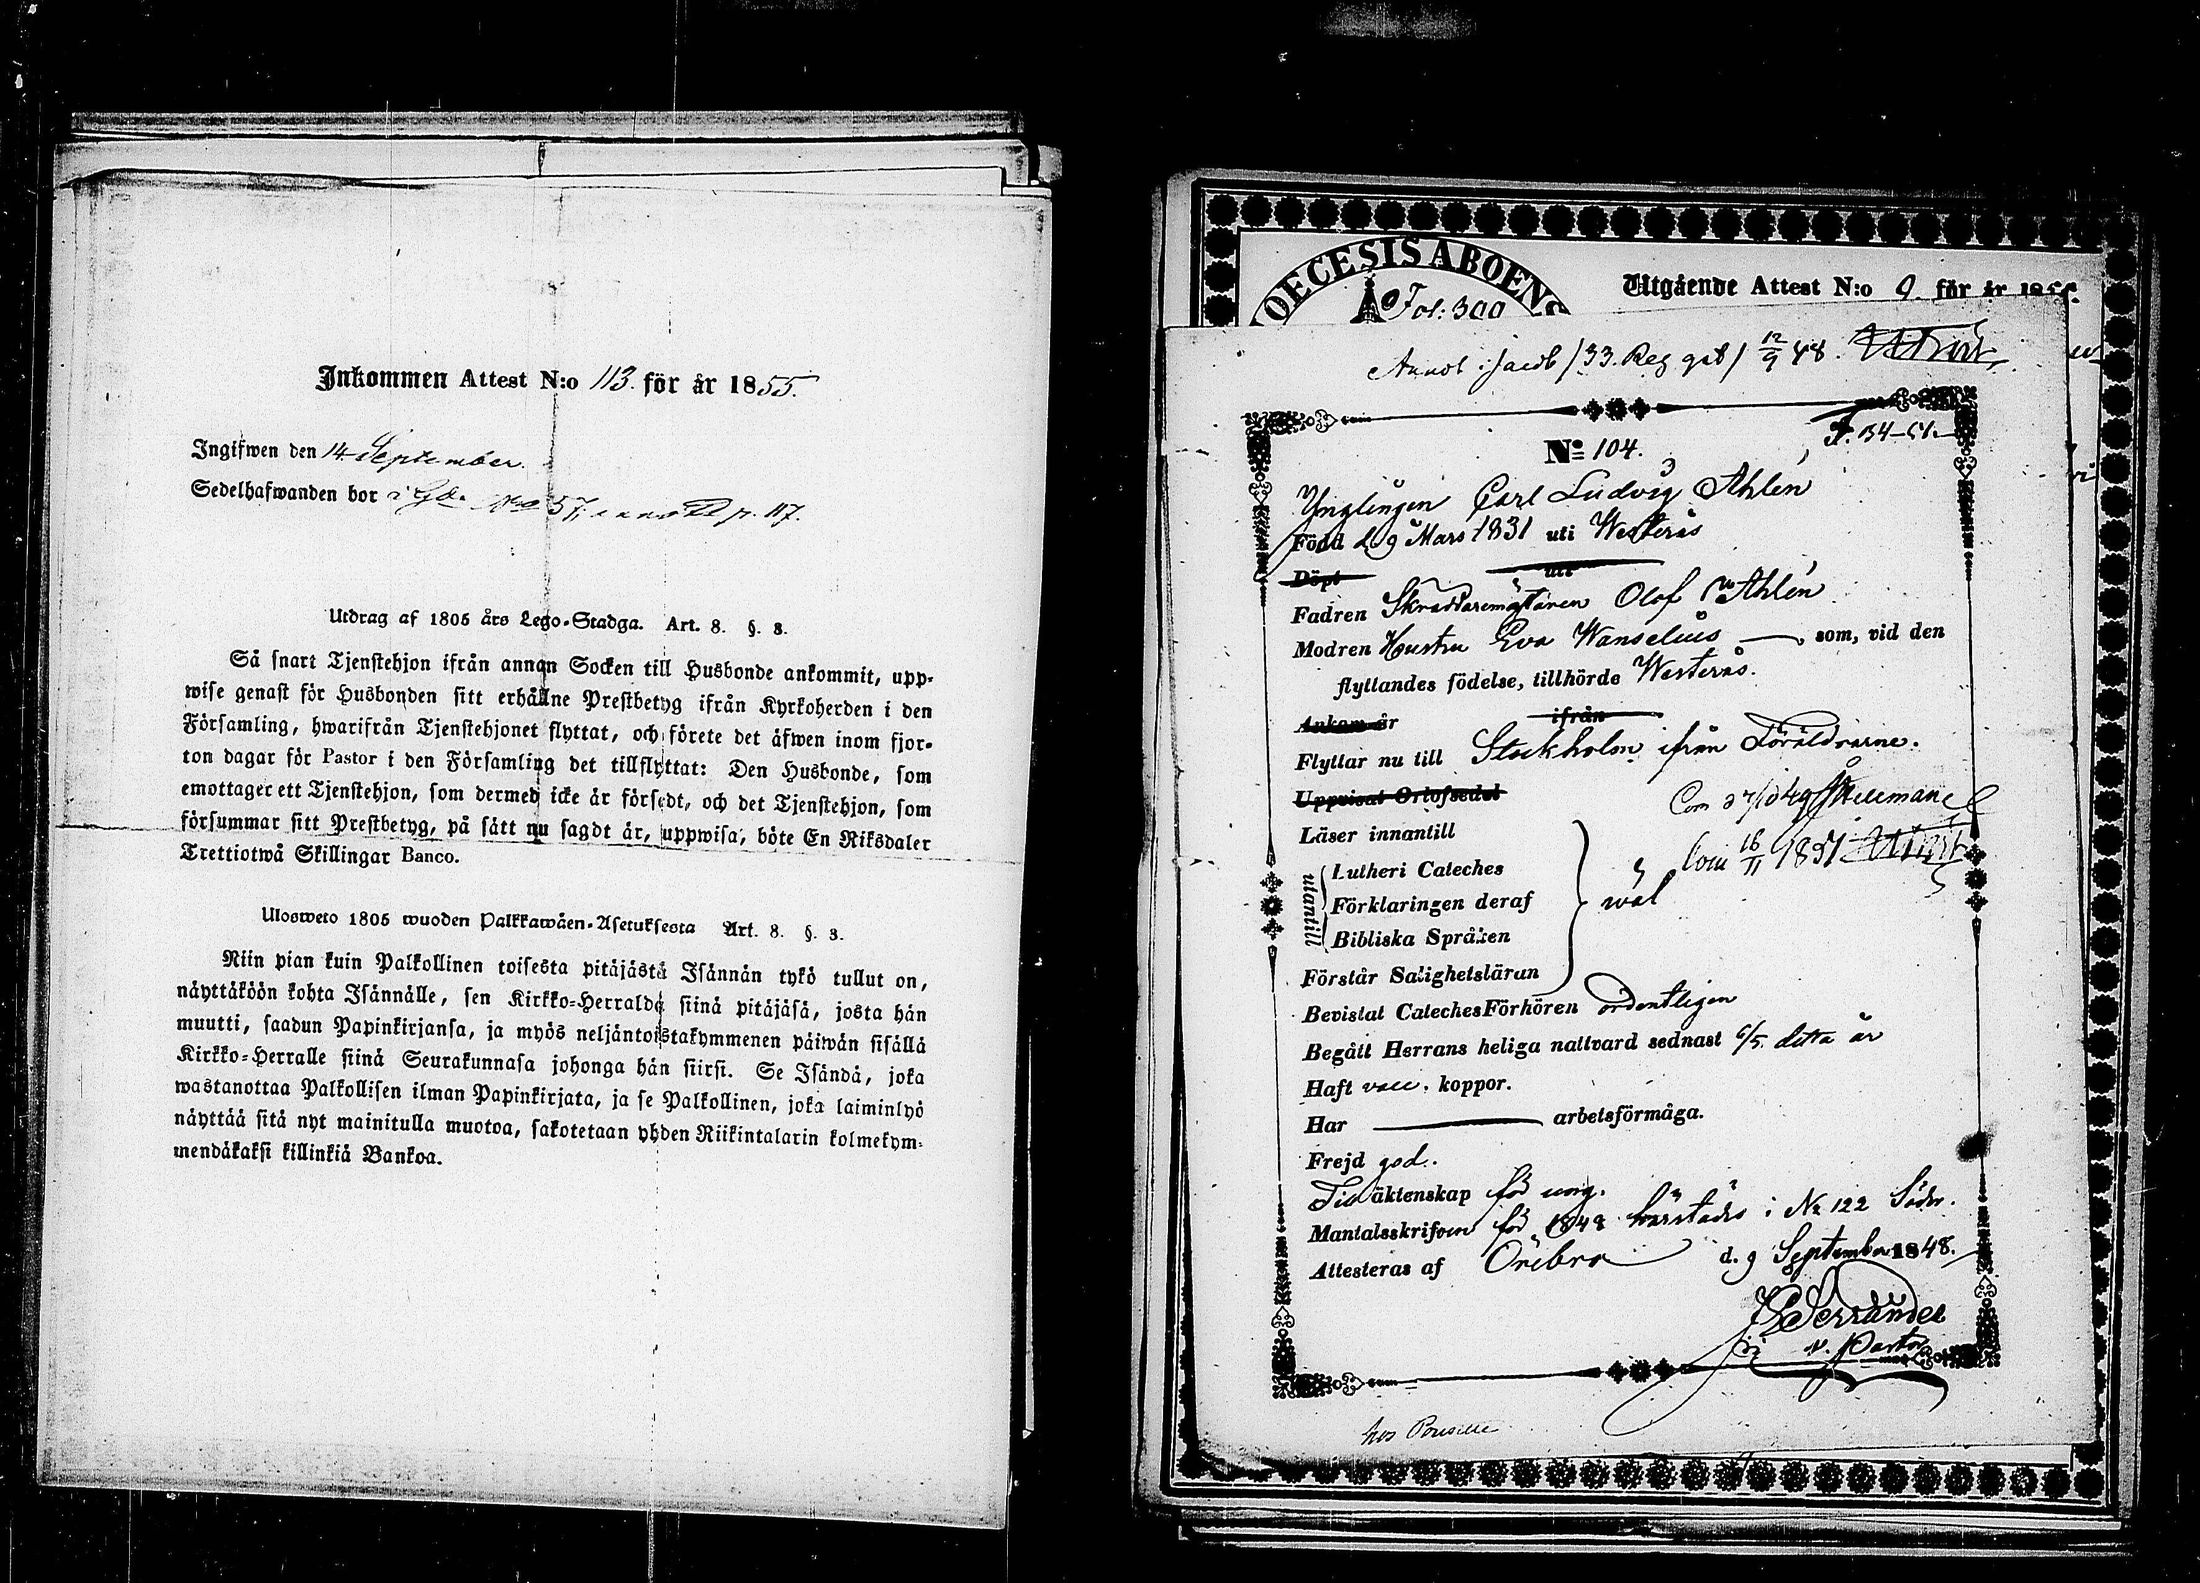 Inkommen Attest N:o 113. för år 1855.
Ingifwen den 14 September.
Sedelhafwanden bor i Gd. No 57, annot p. 117.
Utdrag af 1805 års Lego-Stadga. Art. 8. §. 8.
Så snart Tjenstehjon ifrån annan Socken till Husbonde ankommit, upp-
wise genast för Husbonden sitt erhållne Prestbetyg ifrån Kyrkoherden i den
Församling, hwarifrån Tjenstehjonet flyttat, och förete det äfwen inom fjor-
ton dagar för Pastor i den Församling det tillflyttat: Den Husbonde, som
emottager ett Tjenstehjon, som dermed icke är försedt, och det Tjenstehjon, som
försummar sitt Prestbetyg, på sätt nu sagdt är, uppwisa, böte En Riksdaler
Trettiotwå Skillingar Banco.
Ulosweto 1805 wuoden Palkkawäen-Asetuksesta Art. 8. §. 8.
Niin pian kuin Palkollinen toisesta pitäjästä Isännän tykö tullut on,
näyttäköön kohta Isännälle, sen Kirkko-Herralda siinä pitäjäsä, josta hän
muutti, saadun Papinkirjansa, ja myös neljäntoistakymmenen päiwän sisällä
Kirkko-Herralle siinä Seurakunnasa johonga hän siirsi. Se Isändä, joka
wastanottaa Palkollisen ilman Papinkirjata, ja se Palkollinen, joka laiminlyö
näyttää sitä nyt mainitulla muotoa, sakotetaan yhden Riikintalarin kolmekym-
mendäkaksi killinkiä Bankoa.
OECESIS ABOENS
Utgående Attest N:o 9. för år 185
Fol: 300
Annot. Jacob /33. Reg gat/ 12/9 48.
No 104.
F. 134-51.
Ynglingen Carl Ludvig Ahlén
Född d. 9 Mars 1831 uti Westerås
Döpt uti
Fadren Skräddaremästaren Olof Ahlén
Modren Hustru Eva Wanselius, som, vid den
flyttandes födelse, tillhörde Westerås.
Ankom år ifrån
Flyttar nu till Stockholm ifrån Föräldrarne.
Uppvisat Orlofsedel
Com
Läser innantill
Com 16/11 1851
utantill
Lutheri Cateches
Förklaringen deraf
Bibliska Språken
väl
Förstår Salighetsläran
Bevistat CatechesFörhören ordentligen
Begått Herrans heliga nattvard sednast 6/5. detta år
Haft vacc. koppor.
Har arbetsförmåga.
Frejd god.
Till äktenskap för ung.
Mantalsskrifven för 1848 härstädes i No 122 Söder.
Attesteras af Örebro d. 9 September 1848.
v. Pastor
hos